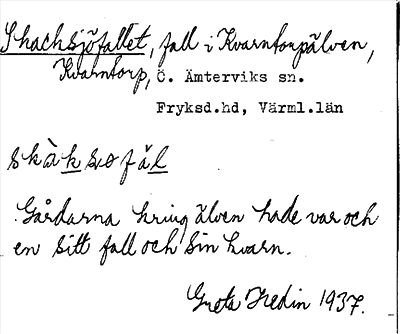 Skachsjöfallet, fall i Kvarntorpälven,
Kvarntorp, Ö. Ämterviks sn.
Fryksd.hd, Värml.län
skàksofäl
Gårdarna kring älven hade var och
en sitt fall och sin kvarn.
Greta Hedin 1937.